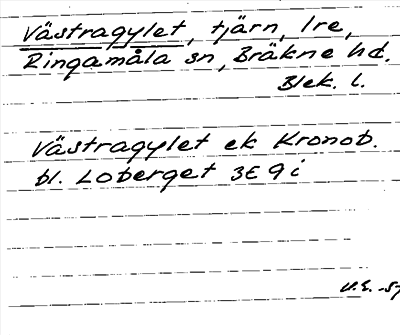 Västragylet, tjärn, Ire,
Ringamåla sn, Bräkne hd.
Blek. l.
Västragylet ek Kronob.
bl. Loberget 3E 9i
U.E. -57